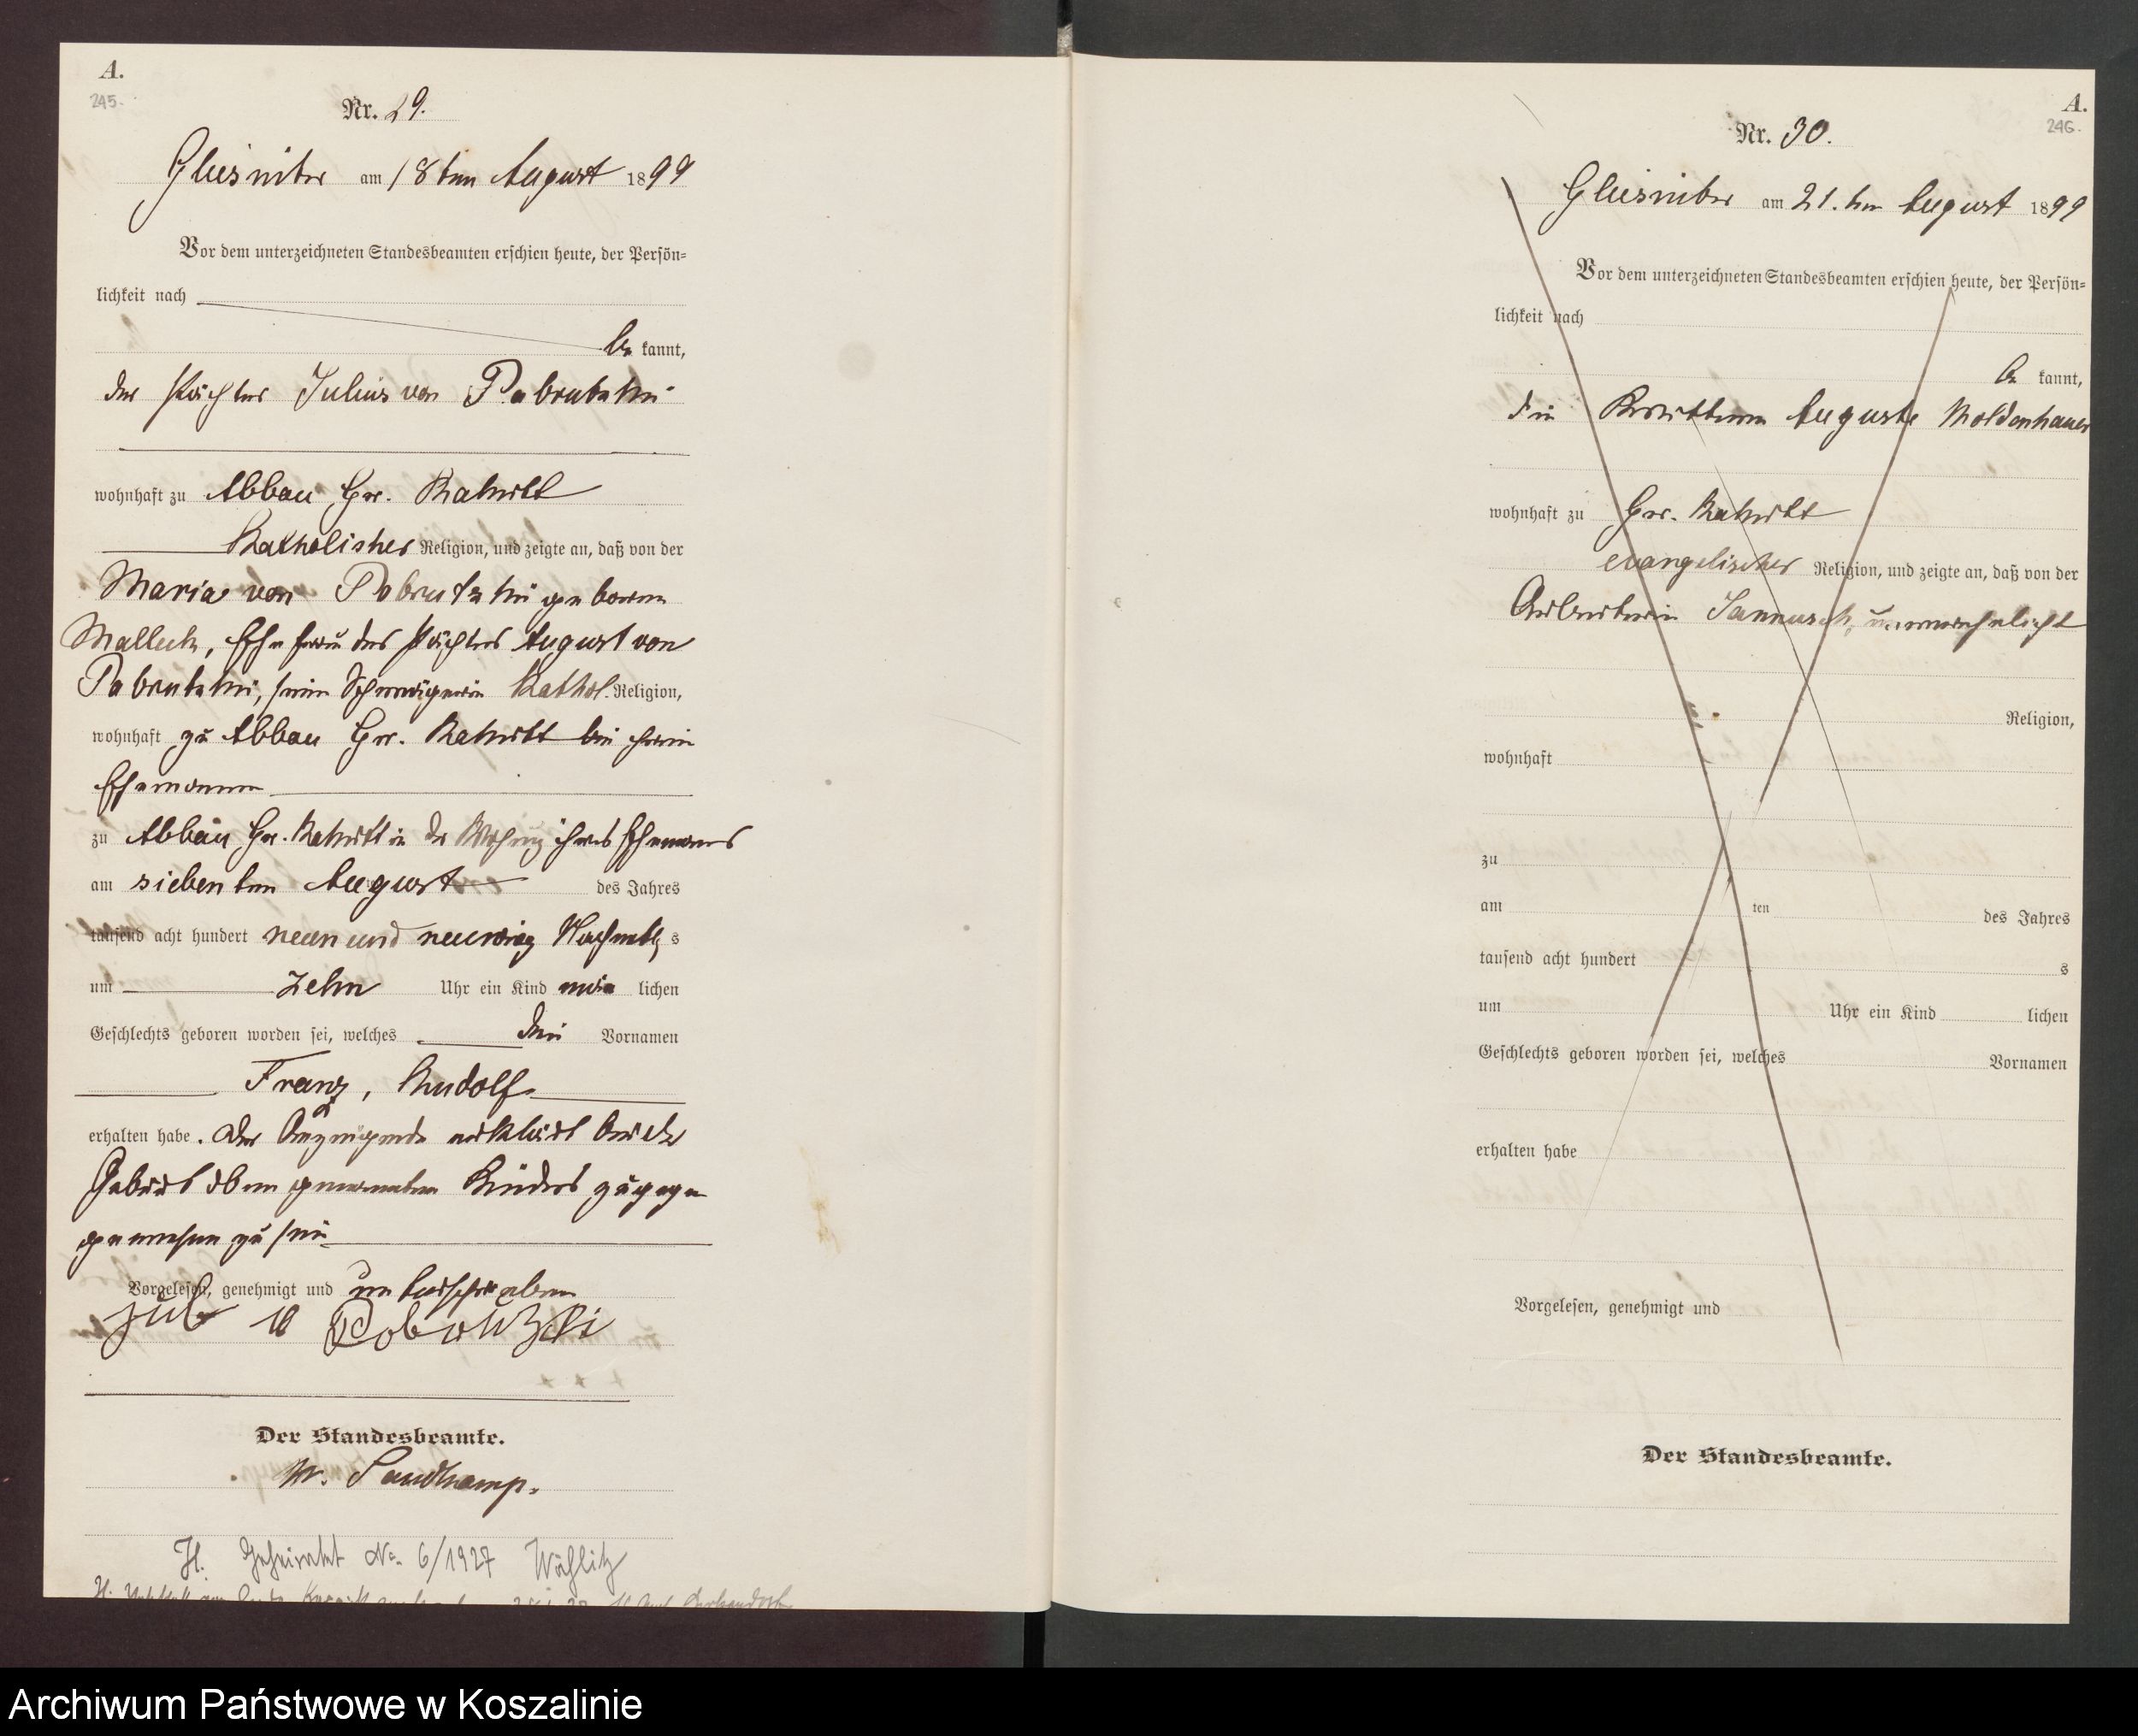 A.
245.
Nr. 29.
Gliesnitz am 18ten August 1899
Vor dem unterzeichneten Standesbeamten erschien heute, der Persön-
lichkeit nach
be kannt,
der Pächter Julius von Pabrutzki
wohnhaft zu Abbau Gr. Rakitt
Katholischer Religion, und zeigte an, daß von der
Maria von Pabrutzki geborene
Malleck, Ehefrau des Pächters August von
Pabrutzki, seine Schwägerin Kathol. Religion,
wohnhaft zu Abbau Gr. Rakitt bei ihrem
Ehemanne
zu Abbau Gr. Rakitt in der Wohnung ihres Ehemannes
am siebenten August des Jahres
tausend acht hundert neun und neunzig Nachmittags
um zehn Uhr ein Kind männlichen
Geschlechts geboren worden sei, welches die Vornamen
Franz, Rudolf
erhalten habe. Der Anzeigende erklärt bei der
Geburt oben genannten Kindes zugegen
gewesen zu sein
Vorgelesen, genehmigt und unterschrieben
Der Standesbeamte.
W. Sandkamp.
H. Geheiratet No. 6/1927
A.
246.
Nr. 30.
Gliesnitz am 21.ten August 1899
Vor dem unterzeichneten Standesbeamten erschien heute, der Persön-
lichkeit nach
be kannt,
die Auguste Moldenhauer
wohnhaft zu Gr. Rakitt
evangelischer Religion, und zeigte an, daß von der
Arbeiterin Jannusch, unverehelicht
Religion,
wohnhaft
zu
am ten des Jahres
tausend acht hundert s
um Uhr ein Kind lichen
Geschlechts geboren worden sei, welches Vornamen
erhalten habe
Vorgelesen, genehmigt und
Der Standesbeamte.
Archiwum Państwowe w Koszalinie